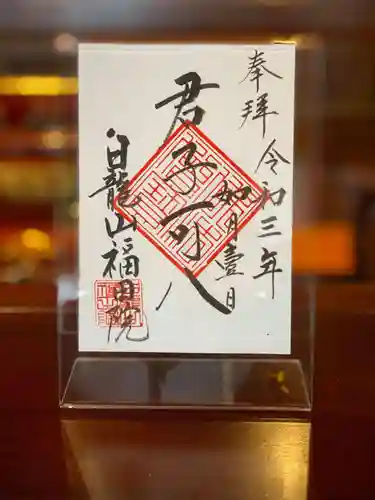 奉拝
令和三年
如月壹日
君子可八
白龍山福田院